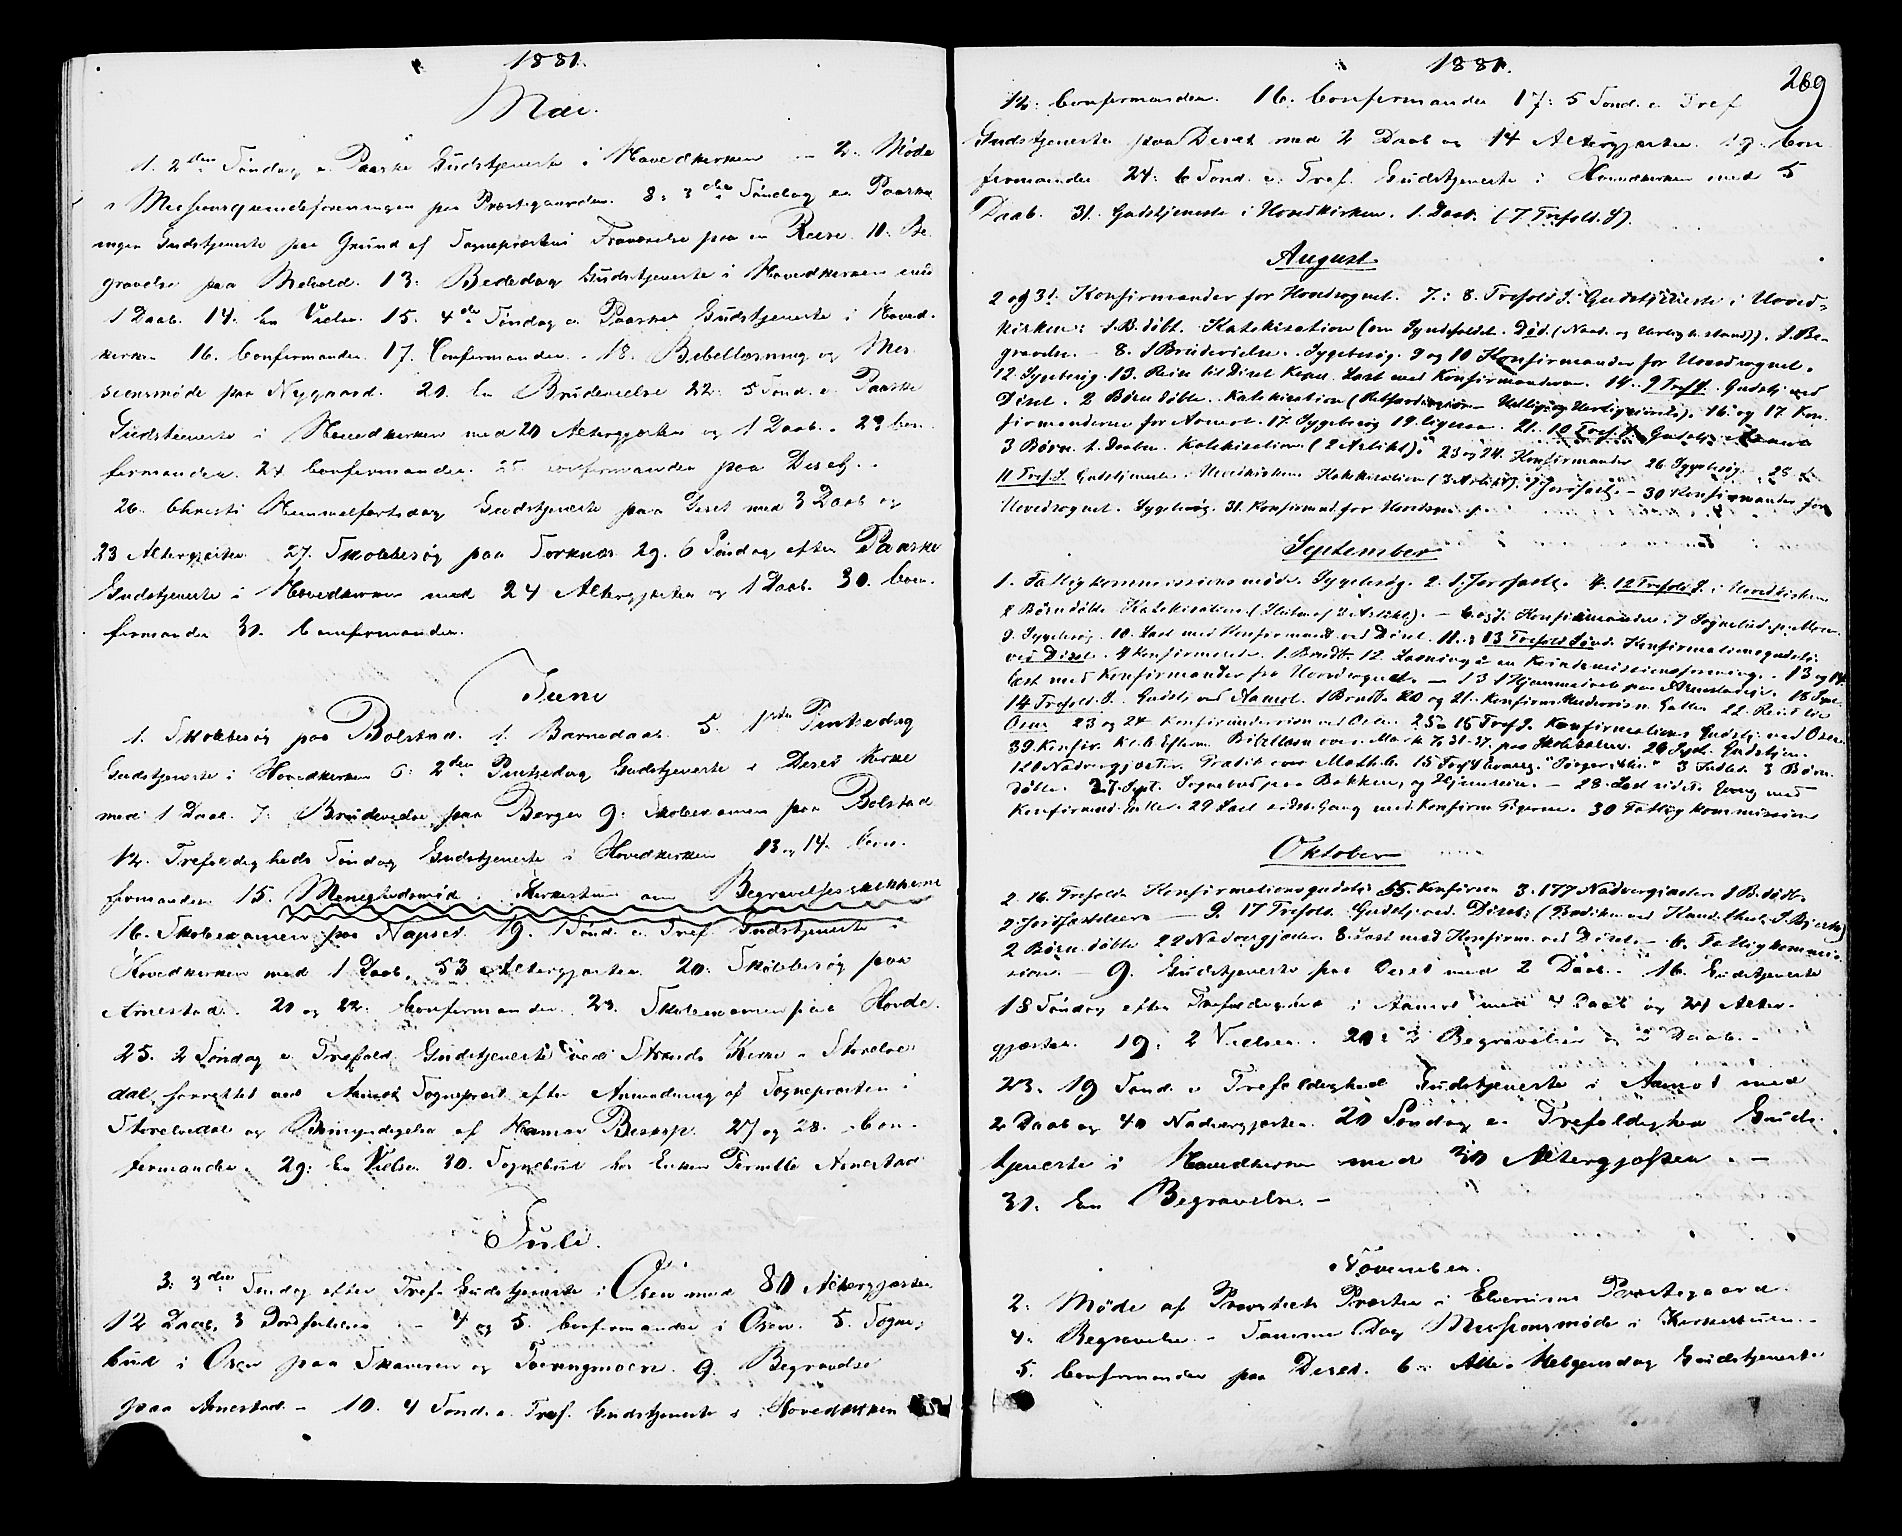 1881.
Mai.
1. 2den Søndag e. Paaske Gudstjeneste i Hovedkirken — 2. Møde
i Missionsqvindeforeningen paa Præstegaarden. 8: 3die Søndag e. Paaske
ingen Gudstjeneste paa Grund af Sognepræstens Fraværelse paa en Reise. 10. Be-
gravelse paa 13. Bededag Gudstjeneste i Hovedkirken med
1 Daab. 14. En Vielse. 15. 4de Søndag e. Paaske Gudstjeneste i Hoved-
kirken 16. Confirmander. 17. Confirmander. - 18. Bibellæsning og Mis-
sionsmøde paa Nygaard. 20. En Brudevielse 22. 5 Sønd. e. Paaske
Gudstjeneste i Hovedkirken med 20 Altergjæster og 1 Daab. 23 Con-
firmander. 24 Confirmander. 25 Confirmander paa Deset.
26. Christi Himmelfartsdag Gudstjeneste paa Deset med 3 Daab og
23 Altergjæster. 27. Skolebesøg paa 29. 6 Søndag efter Paaske
Gudstjeneste i Hovedkirken med 24 Altergjæster og 1 Daab. 30. Con-
firmander 31. Confirmander.
Juni
1. Skolebesøg paa Bolstad. 1. Barnedaab. 5. 1ste Pintsedag
Gudstjeneste i Hovedkirken 6: 2den Pintsedag Gudstjeneste i Deset Kirke
med 1 Daab. 7: Brudevielse paa Berger 9: Skoleexamen paa Bolstad
12. Trefoldigheds Søndag Gudstjeneste i Hovedkirken 13 og 14. Con-
firmander 15. Menighedsmøde i Kirkestuen om Begravelsesskikkene
16. Skoleexamen paa Napset. 19. 1 Sønd. e. Tref. Gudstjeneste i
Hovedkirken med 1 Daab, 53 Altergjæster. 20. Skolebesøg paa
Arnestad. 20 og 22. Confirmander. 23. Skoleexamen paa Hovde.
25. 2 Søndag e. Trefold. Gudstjeneste ved Strands Kirke i Storelve-
dal, forrettet ved Aamots Sognepræst efter Anmodning af Sognepræsten i
Storelvedal og Bemyndigelse af Hamar Bispesp. 27 og 28. Con-
firmander. 29: En Vielse 30. Sognebud hos Enken Pernille Arnestad
Juli.
3: 3die Søndag efter Tref. Gudstjeneste i Osen med 80 Altergjæster
12 Daab, 3 Jordfæstelser — 4 og 5. Confirmander i Osen. 5. Sogne-
bud i Osen paa og 9. Begravelse
paa Arnestad. - 10. 4 Sønd. e. Tref. Gudstjeneste i Hovedkirken
1881.
269
12. Confirmander. 16. Confirmander 17: 5 Sønd. e. Tref
Gudstjeneste paa Deset med 2 Daab og 14 Altergjæster. 19. Con
firmander 24: 6 Sønd. e. Tref. Gudstjeneste i Hovedkirken med 5
Daab. 31. Gudstjeneste i Hovedkirken. 1. Daab. (7 Trefold. S).
August.
2 og 3: Konfirmander for Hovedsognet. 7: 8. Trefold S. Gudstjeneste i Hoved-
kirken: 1 B. døbt. Katekisation (om Syndefaldet. Død. (Naad. og Herligh. stand)). 1. Be-
gravelse. - 8. 1 Brudevielse. Sygebesøg. 9 og 10 Konfirmander for Hovedsognet.
12. Sygebesøg. 13. Reise til Diset Læst med Konfirmanderne. 14. 9 Tref S. Gudstj. ved
Diset. 2 Børn døbte. Katekisation (Retfærdiggj. Helliggj. Herliggjørelse). 16 og 17. Kon-
firmanderne for Aamot. 17. Sygebesøg 19. ligesaa. 21. 10 Tref. S. Gudstj.
3 Børn t. Daaben. Katekisation (2 Artikl). 23 og 24. Konfirmander 26. Sygebesøg. 28
11 Tref. S. Gudstjeneste i Hovedkirken Katekisation (3 Artikl). 1 Jordfæst. - 30 Konfirmander for
Hovedsognet. Sygebesøg. 31. Konfirmand. for Hovedsogn.
September
1. Fattigkommissionsmøde. Sygebesøg. 2. 1. Jordfæst. 4. 12 Trefold S. i Hovedkirken
Børn døbte Katekisation - 6. og 7. Konfirmander. 7 Sognebud
9. Sygebesøg. 10. Læst med Konfirmand. ved Diset. 11. 13 Trefold Sønd. Konfirmationsgudstj.
ved Diset. 4 Konfirmerede. 1. Brudt. 12. Læsning i en Kvindemissionsforening. - 13 og 14
Læst med Konfirmander fra Hovedsognet. - 13 1 Hjemmedaab paa Arnestad. 18 Sept.
14 Trefold. S. Gudstj. ved Aamot. 1 Brudt. 20 og 21. Konfirm. 22. Reist til
Osen 23 og 24 Konfirmander ved Osen. 25. 15 Tref S. Konfirmations Gudstj. ved Osen.
39. Konfir. Kl. 6 Efterm. Bibellæsn. over Mark. 7, 31-37. paa Skolelokalet. 26 Sept. Gudstj.
120 Nadvergjæster. Prædik over Matth. 6. 15 Tref S Evang. 3 Jordfæst. 3 Børn
døbte. 27. Sept. Sognebud paa Bakken, og Hjemreise. - 28. Læst sidste Gang med
Konfirmand. 29 Læst sidste Gang med Konfirm. Pigerne. 30 Fattigkommission
Oktober
2. 16. Trefold. Konfirmationsgudstj. 55. Konfirm 3. 177 Nadvergjæster 1 B. døbt.
2 Jordfæstelser — 9. 17 Trefold. Gudstj. ved Diset: (Prædiken ved Kand. theol. S. Bjerke)
2 Børn døbte 22 Nadvergjæster. 8. Læst med Konfirm. ved Diset. - 6. Fattigkommis-
sion. - 9. Gudstjeneste paa Deset med 2 Daab. - 16. Gudstjeneste
18 Søndag efter Trefoldighed i Aamot med 4 Daab og 21 Alter-
gjæster. 19: 2 Vielser. 20: 2 Begravelser og 2 Daab. -
23. 19 Sønd. e. Trefoldighed Gudstjeneste i Aamot med
2 Daab og 40 Nadvergjæster. 20 Søndag e. Trefoldighed Guds-
tjeneste i Hovedkirken med 30 Altergjæster. -
31. En Begravelse. -
November.
2: Møde af Provstiets Præster i Elverums Præstegaard.
4. Begravelse. - Samme Dag Missionsmøde i Kirkestuen. -
5. Confirmander paa Deset. 6. Alle-Helgensdag Gudstjeneste